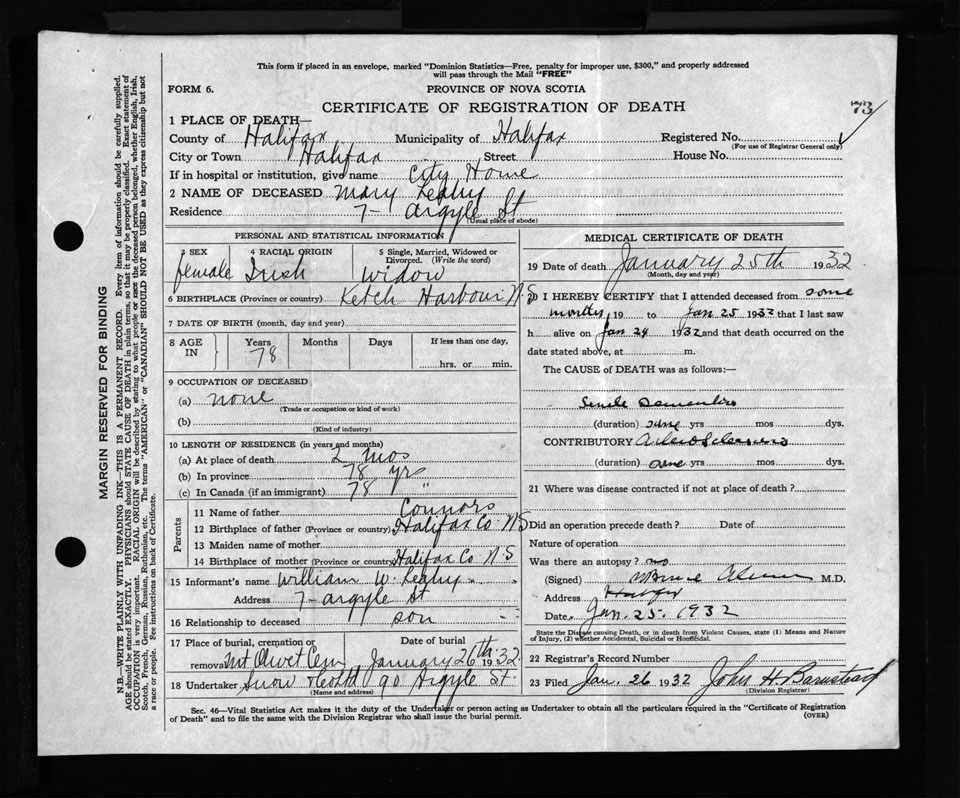 This form if placed in an envelope, marked "Dominion Statistics—Free, penalty for improper use, $300," and properly addressed
will pass through the Mail "FREE"
FORM 6.
PROVINCE OF NOVA SCOTIA
CERTIFICATE OF REGISTRATION OF DEATH
73
1 PLACE OF DEATH—
County of Halifax Municipality of Halifax Registered No.
(For use of Registrar General only)
City or Town Halifax Street House No.
If in hospital or institution, give name City Home
2 NAME OF DECEASED Mary Leahy
Residence 7- Argyle St
(Usual place of abode)
PERSONAL AND STATISTICAL INFORMATION
3 SEX 4 RACIAL ORIGIN 5 Single, Married, Widowed or Divorced. (Write the word)
female Irish widow
6 BIRTHPLACE (Province or country) Ketch Harbour N.S
7 DATE OF BIRTH (month, day and year)
8 AGE IN Years Months Days If less than one day,
78 hrs. or min.
9 OCCUPATION OF DECEASED
(a) none
(Trade or occupation or kind of work)
(b)
(Kind of industry)
10 LENGTH OF RESIDENCE (in years and months)
(a) At place of death 2 mos
(b) In province 78 yrs
(c) In Canada (if an immigrant) 78 "
Parents
11 Name of father Connors
12 Birthplace of father (Province or country) Halifax Co N S
13 Maiden name of mother
14 Birthplace of mother (Province or country) Halifax Co N-S
15 Informant's name William W Leahy
Address 7- argyle St
16 Relationship to deceased son
17 Place of burial, cremation or removal Date of burial
Mt Olivet Cem January 26th 1932
18 Undertaker Snow 90 Argyle St
(Name and address)
MEDICAL CERTIFICATE OF DEATH
19 Date of death January 25th 1932
(Month, day and year)
20 I HEREBY CERTIFY that I attended deceased from some
months, 19 to Jan 25 1932 that I last saw
h alive on Jan 24 1932 and that death occurred on the
date stated above, at m.
The CAUSE of DEATH was as follows:—
Senile Dementia
(duration) yrs mos dys.
CONTRIBUTORY
(duration) yrs mos dys.
21 Where was disease contracted if not at place of death?
Did an operation precede death? Date of
Nature of operation
Was there an autopsy? no
(Signed) M.D.
Address Halifax
Date Jan. 25. 1932
State the Disease causing Death, or in death from Violent Causes, state (1) Means and Nature
of Injury, (2) whether Accidental, Suicidal or Homicidal.
22 Registrar's Record Number
23 Filed Jan. 26 1932 John H Barnstead
(Division Registrar)
Sec. 46—Vital Statistics Act makes it the duty of the Undertaker or person acting as Undertaker to obtain all the particulars required in the "Certificate of Registration
of Death" and to file the same with the Division Registrar who shall issue the burial permit.
(OVER)
MARGIN RESERVED FOR BINDING
N.B.—WRITE PLAINLY WITH UNFADING INK—THIS IS A PERMANENT RECORD. Every item of information should be carefully supplied.
AGE should be stated EXACTLY. PHYSICIANS should STATE CAUSE OF DEATH in plain terms, so that it may be properly classified. Exact statement of
OCCUPATION is very important. RACIAL ORIGIN will be described by stating to what people or race the deceased person belonged, whether English, Irish,
Scotch, French, German, Russian, Ruthenian, etc. The terms "AMERICAN" or "CANADIAN" SHOULD NOT BE USED as they express citizenship but not
a race or people. See instructions on back of Certificate.